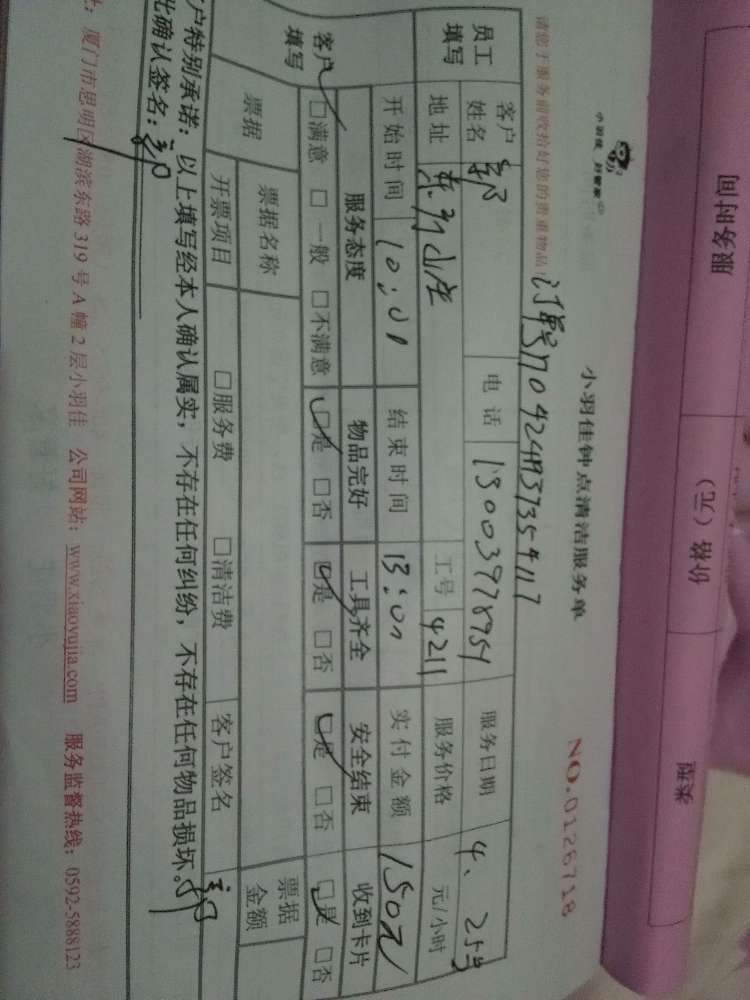 服务时间 价格（元） 来源
小羽佳 好管家
小羽佳钟点清洁服务单
NO.0126718
请您于服务前收拾好您的贵重物品！
员工填写
客户姓名 电话 服务日期 4、25号
地址 工号 4211 服务价格 元/小时
开始时间 10:01 结束时间 13:01 实付金额 150元
客户填写
服务态度 物品完好 工具齐全 安全结束 收到卡片
□满意 □一般 □不满意 □是 □否 □是 □否 □是 □否 □是 □否
票据 票据名称 票据金额
开票项目 □服务费 □清洁费 客户签名
户特别承诺：以上填写经本人确认属实，不存在任何纠纷，不存在任何物品损坏。
此确认签名：
厦门市思明区湖滨东路319号A幢2层小羽佳 公司网站：www.xiaoyujia.com 服务监督热线：0592-5888123